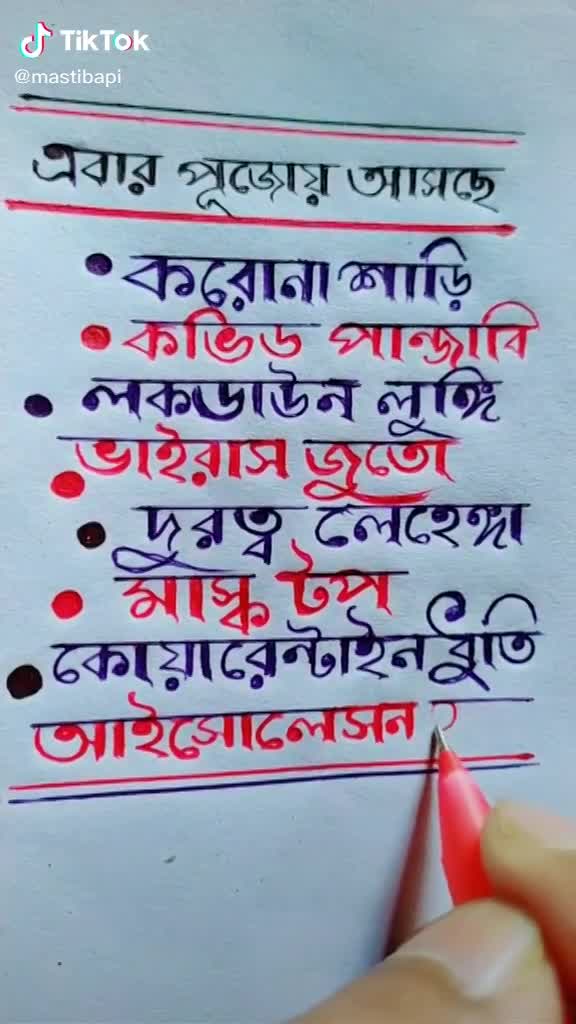 TikTok
@mastibapi
এবার পূজোয় আসছে
• করোনা শাড়ি
• কভিড পান্জাবি
• লকডাউন লুঙ্গি
• ভাইরাস জুতো
• দুরত্ব লেহেঙ্গা
• মাস্ক টপ
• কোয়ারেন্টাইন ধুতি
আইসোলেসন